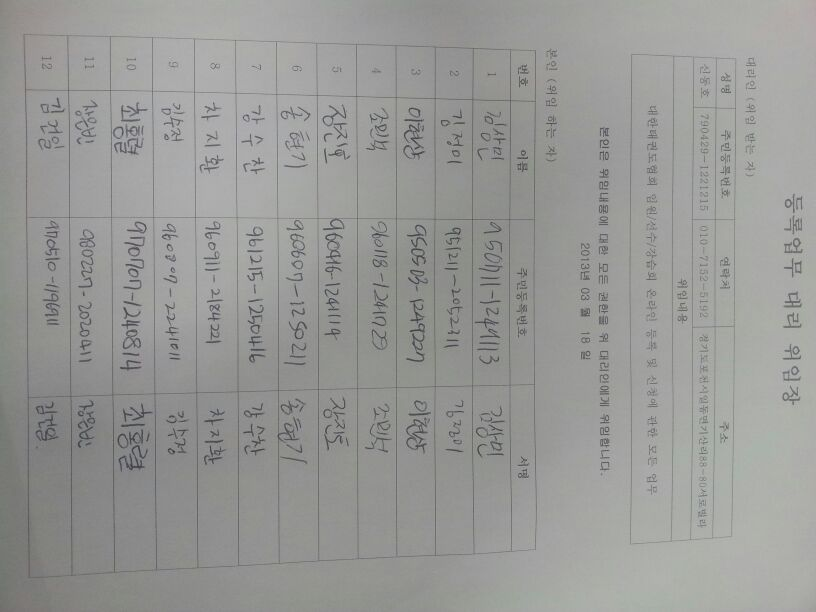 등록업무 대리 위임장
대리인 (위임 받는 자)
성명 주민등록번호 연락처 주소
신동호 790429-1221215 010-7152-5192 경기도포천시일동면기산리88-80서로빌라
위임내용
대한태권도협회 임원/선수/강습회 온라인 등록 및 신청에 관한 모든 업무
본인은 위임내용에 대한 모든 권한을 위 대리인에게 위임합니다.
2013년 03 월 18 일
본인 (위임 하는 자)
번호 이름 주민등록번호 서명
1 김상민 950711-1249113 김상민
2 김정이 951211-2052311 김정이
3 이현상 950503-1249227 이현상
4 조민식 960118-1241029 조민식
5 강진모 960416-1241114 강진모
6 송현기 960607-1250211 송현기
7 강수찬 961215-1250416 강수찬
8 차지환 960911-184221 차지환
9 김수정 960807-2241011 김수정
10 최홍열 970707-1240814 최홍열
11 980227-2020411
12 김건일 970510-1196911 김건일